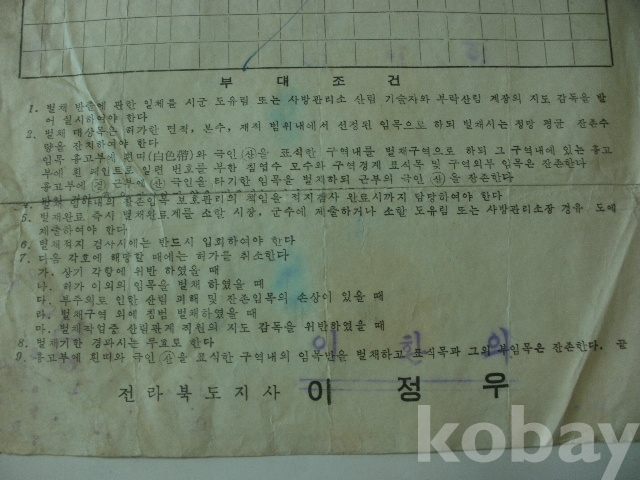 부 대 조 건
1. 벌채 반출에 관한 일체를 시군 도유림 또는 사방관리소 산림 기술자와 부락산림 계장의 지도 감독을 받
어 실시하여야 한다
2. 벌채 대상목은 허가한 면적, 본수, 재적 범위내에서 선정된 임목으로 하되 벌채시는 정당 평균 잔존수
량을 잔치하여야 한다
임목 흉고부에 (白色帶)와 극인 ㊢을 표식한 구역내를 벌채구역으로 하되 그 구역내에 있는 흉고
부에 흰 페인트로 일련 번호를 부한 침엽수 모수와 구역경계 표식목 및 구역외부 임목은 잔존한다
흉고부에 근부에 극인을 타기한 임목을 벌채하되 근부의 극인 을 잔존한다
4. 구역내의 잔존임목 보호관리의 책임을 적지검사 완료시까지 담당하여야 한다
5. 벌채완료 즉시 벌채완료계를 소할 시장, 군수에 제출하거나 소할 도유림 또는 사방관리소장 경유 도에
제출하여야 한다
6. 벌채적지 검사시에는 반드시 입회하여야 한다
7. 다음 각호에 해당할 때에는 허가를 취소한다
가. 상기 각항에 위반 하였을 때
나. 허가 이외의 임목을 벌채 하였을 때
다. 부주의로 인한 산림 피해 및 잔존임목의 손상이 있을 때
라. 벌채구역 외에 침범 벌채하였을 때
마. 벌채작업중 산림관계 직원의 지도 감독을 위반하였을 때
8. 벌채기한 경과시는 무효로 한다
9. 흉고부에 흰띠와 극인 을 표식한 구역내의 임목만을 벌채하고 표식목과 그외 부임목은 잔존한다. 끝
전라북도지사 이 정 우
kobay